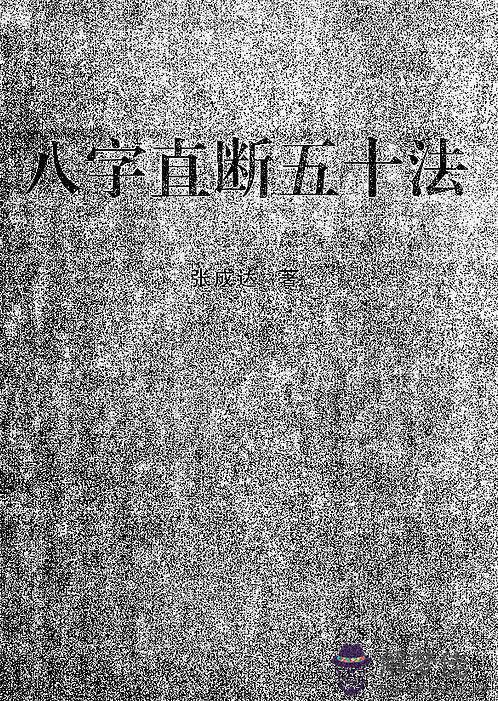 八字直断五十法
张成达 著